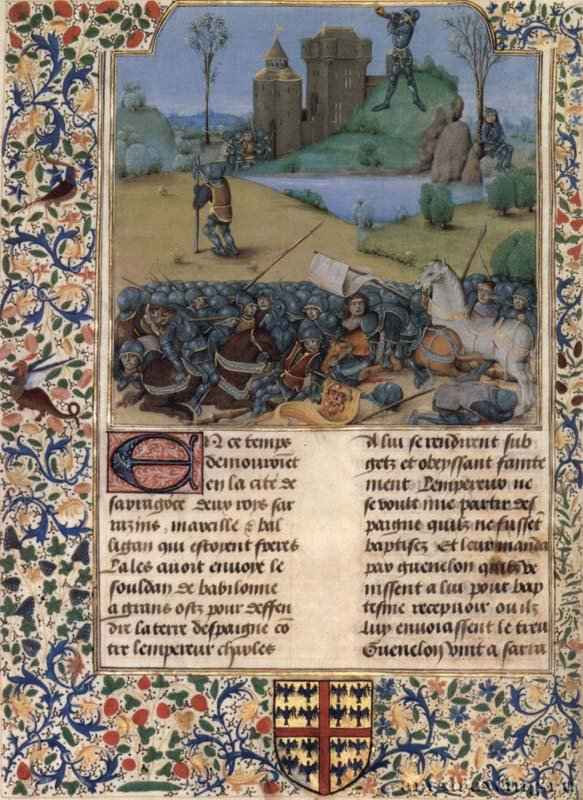 En ce temps
demouroiet
en la cite de
sarragoce deux roys sar
razins, marcille & bal
ligan qui estoyent freres
Lales auoit enuoye le
souldan de babilonne
a grans ostz pour deffen
dre la terre despaigne cō
tre lempereur charles
A lui se rendirent sub
getz et obeyssant fainte
ment Lempereur ne
se voult mie partir des
paigne quilz ne fussēt
baptisez Et leur manda
par guenelon quilz ve
nissent a lui pour bap
tesme recepuoir ou ilz
luy enuoiassent le treu
Guenelon vint a sarra